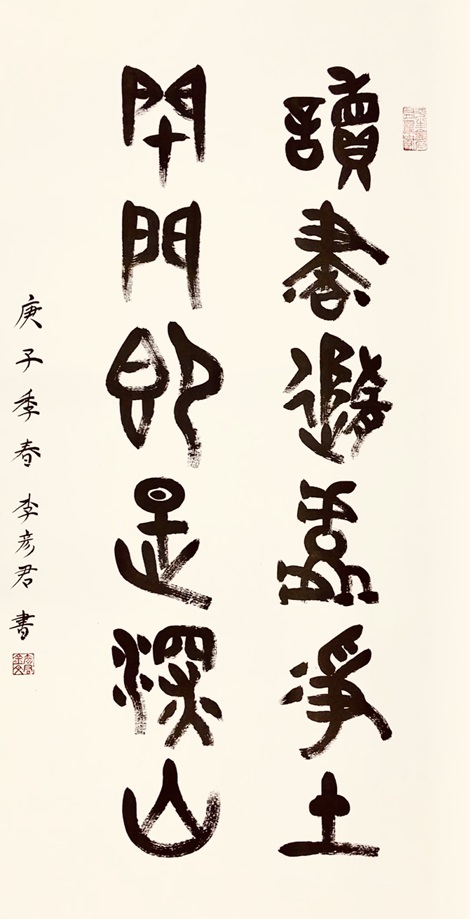 讀書隨處淨土
閉門即是深山
庚子季春 李彦君書